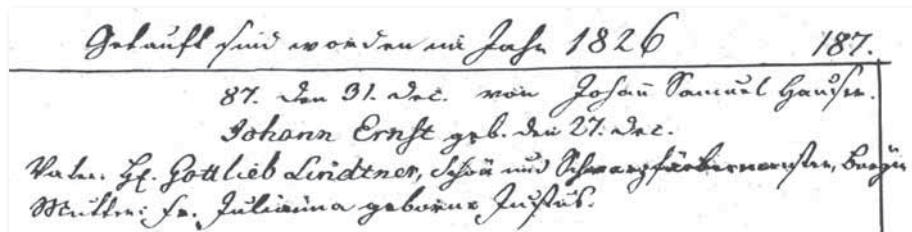 Getauft sind worden im Jahr 1826 187.
87. den 31. Dec. von Johañ Samuel Hausen.
Johann Ernst geb. den 27. Dec.
Vater: Hr. Gottlieb Lindtner, Schön und Schwarzfärbermeister,
Mutter: Fr. Julianna geborne Justus.